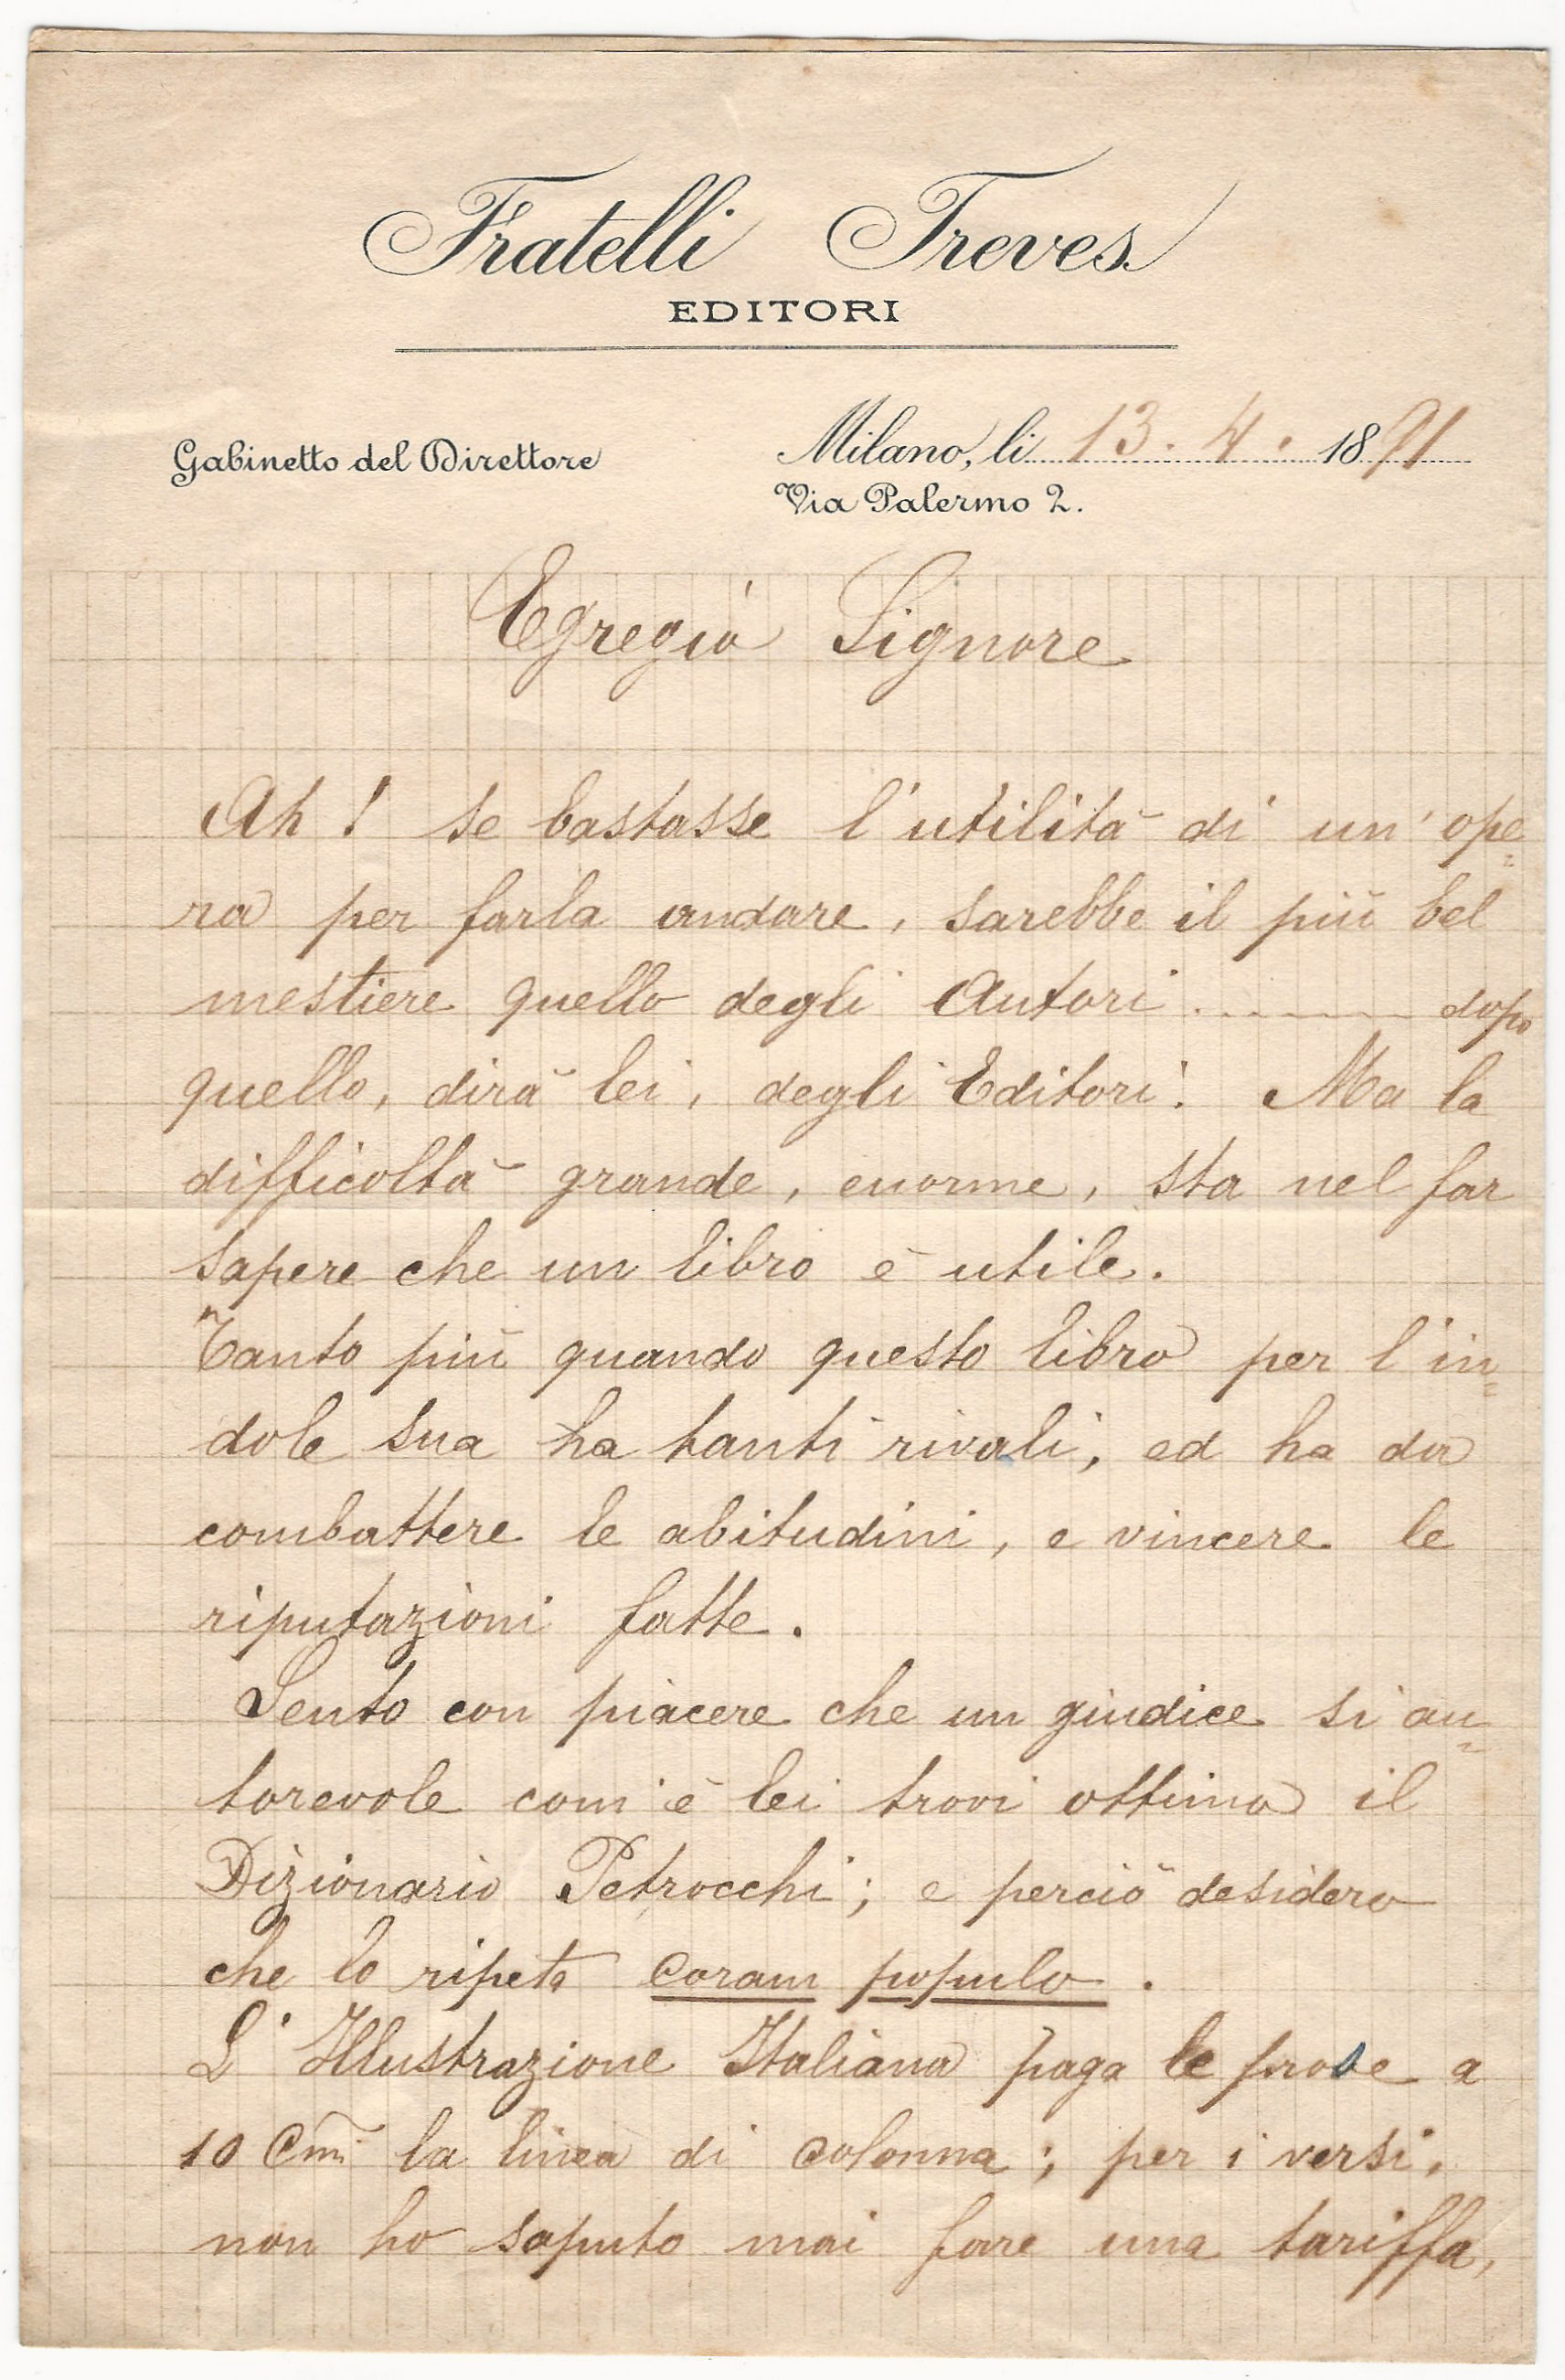 Fratelli Treves
EDITORI
Gabinetto del Direttore
Milano, li 13. 4. 1891
Via Palermo 2.
Egregio Signore
Ah! se bastasse l'utilità di un'ope=
ra per farla andare, sarebbe il più bel
mestiere quello degli Autori ........ dopo
quello, dirà lei, degli Editori! Ma la
difficoltà grande, enorme, sta nel far
sapere che un libro è utile.
Tanto più quando questo libro per l'in=
dole sua ha tanti rivali, ed ha da
combattere le abitudini, e vincere le
riputazioni fatte.
Sento con piacere che un giudice si au=
torevole com'è lei trovi ottimo il
Dizionario Petrocchi; e perciò desidero
che lo ripeta coram populo.
L'Illustrazione Italiana paga le prose a
10 Cmi la linea di colonna; per i versi,
non ho saputo mai fare una tariffa,